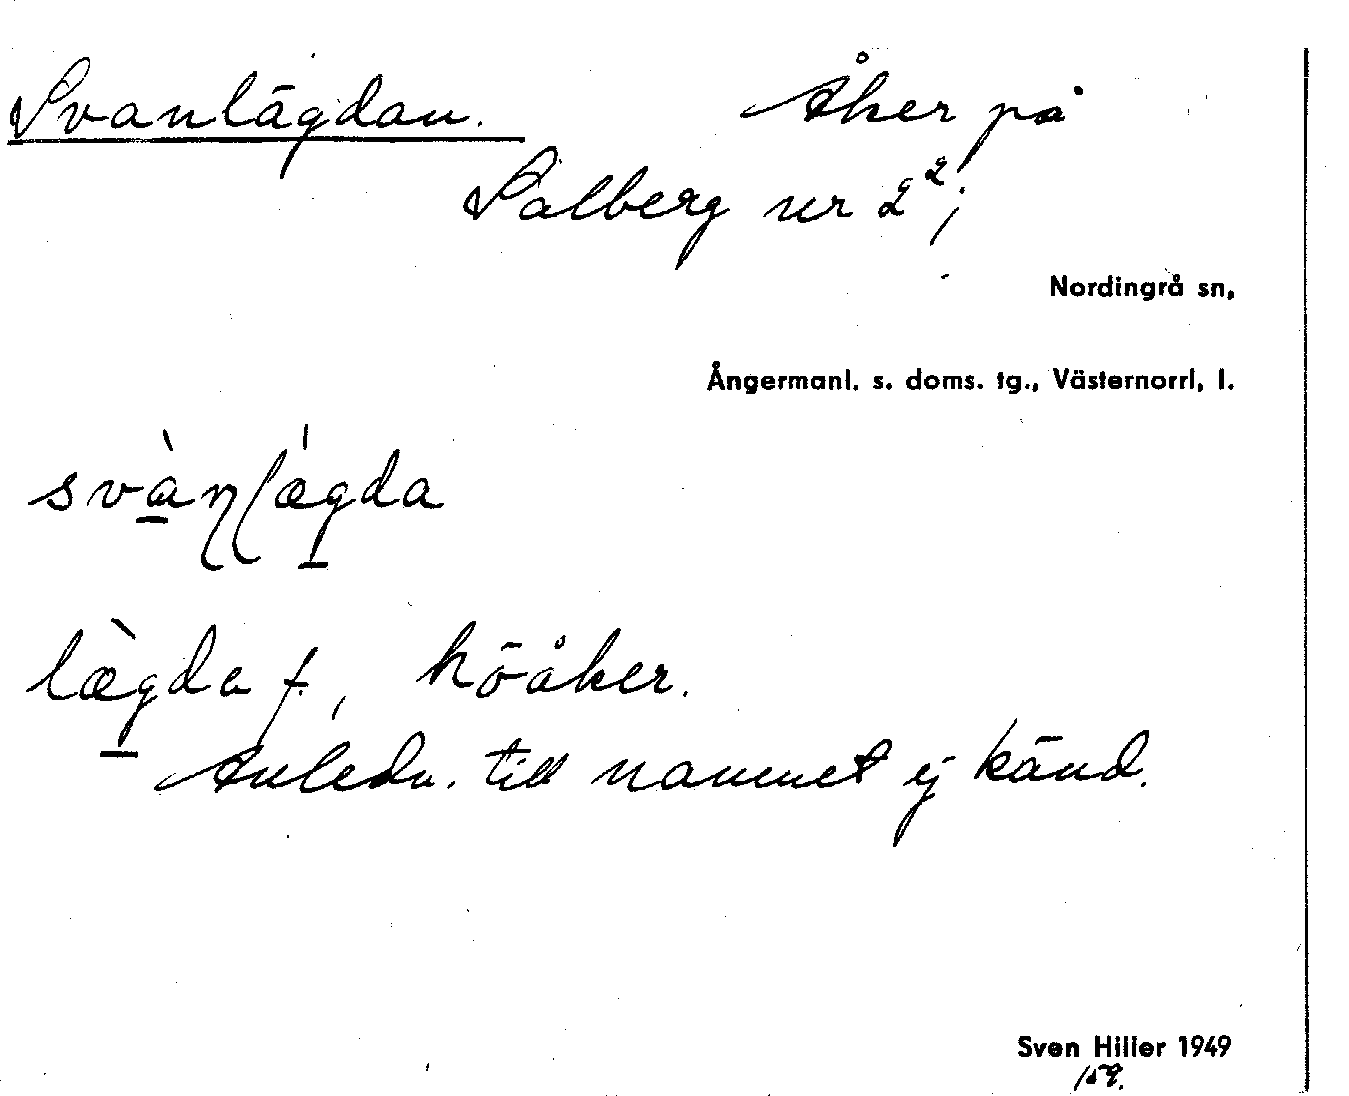 Svanlägdan. Åker på
Salberg nr 2²;
Nordingrå sn,
Ångermanl. s. doms. tg., Västernorrl, l.
svàṉlægda
lægda f., höåker.
Anledn. till namnet ej känd.
Sven Hiller 1949